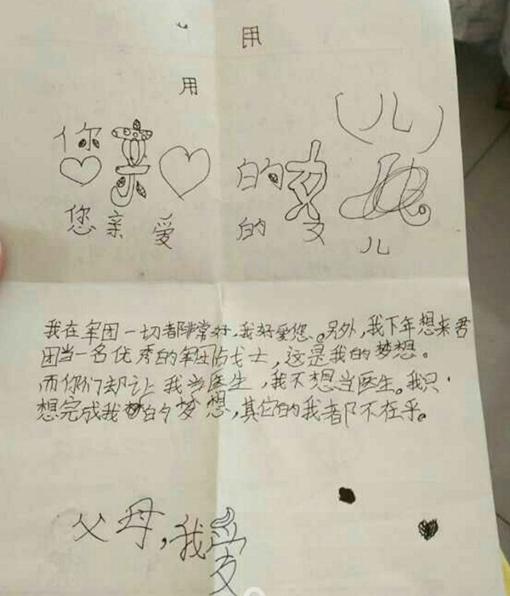 用
用
(儿)
你亲 的
您亲爱 的 儿
我在军团一切都非常好,我好爱您。另外,我下年想来君
团当一名优秀的军团战士,这是我的梦想。
而你们却让我当医生,我不想当医生。我只
想完成我的梦想,其它的我都不在乎。
父母,我爱